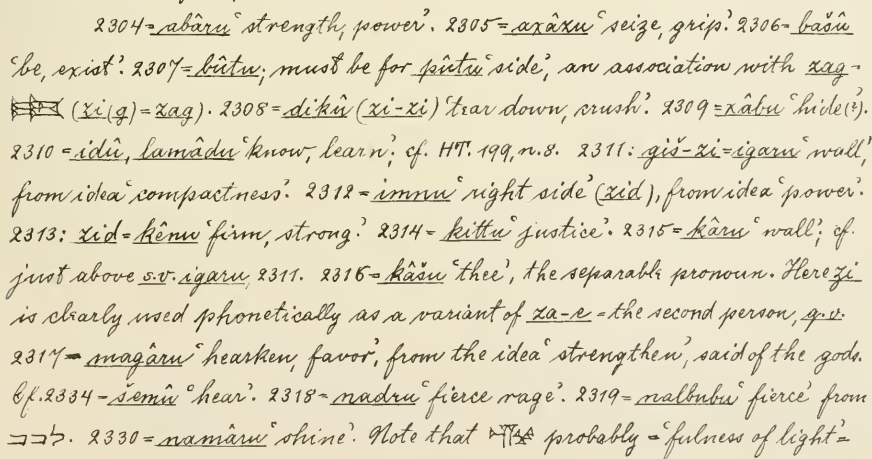 2304=abâru 'strength, power'. 2305=axâzu 'seize, grip'. 2306=bašû
'be, exist'. 2307=bûtu; must be for pûtu 'side', an association with zag-
(zi(g)=zag). 2308=dikû (zi-zi) 'tear down, crush'. 2309=xâbu 'hide(?)'.
2310=idû, lamâdu 'know, learn'; cf. HT. 199, n. 8. 2311: giš-zi=igaru 'wall',
from idea 'compactness'. 2312=imnu 'right side' (zid), from idea 'power'.
2313: zid=kênu 'firm, strong'. 2314=kittu 'justice'. 2315=kâru 'wall'; cf.
just above s.v. igaru, 2311. 2316=kâšu 'thee', the separable pronoun. Here zi
is clearly used phonetically as a variant of za-e=the second person, q.v.
2317=magâru 'hearken, favor', from the idea 'strengthen', said of the gods.
Cf. 2334=šemû 'hear'. 2318=nadru 'fierce rage'. 2319=nalbubu 'fierce' from
לבב. 2330=namâru 'shine'. Note that probably = 'fulness of light'=